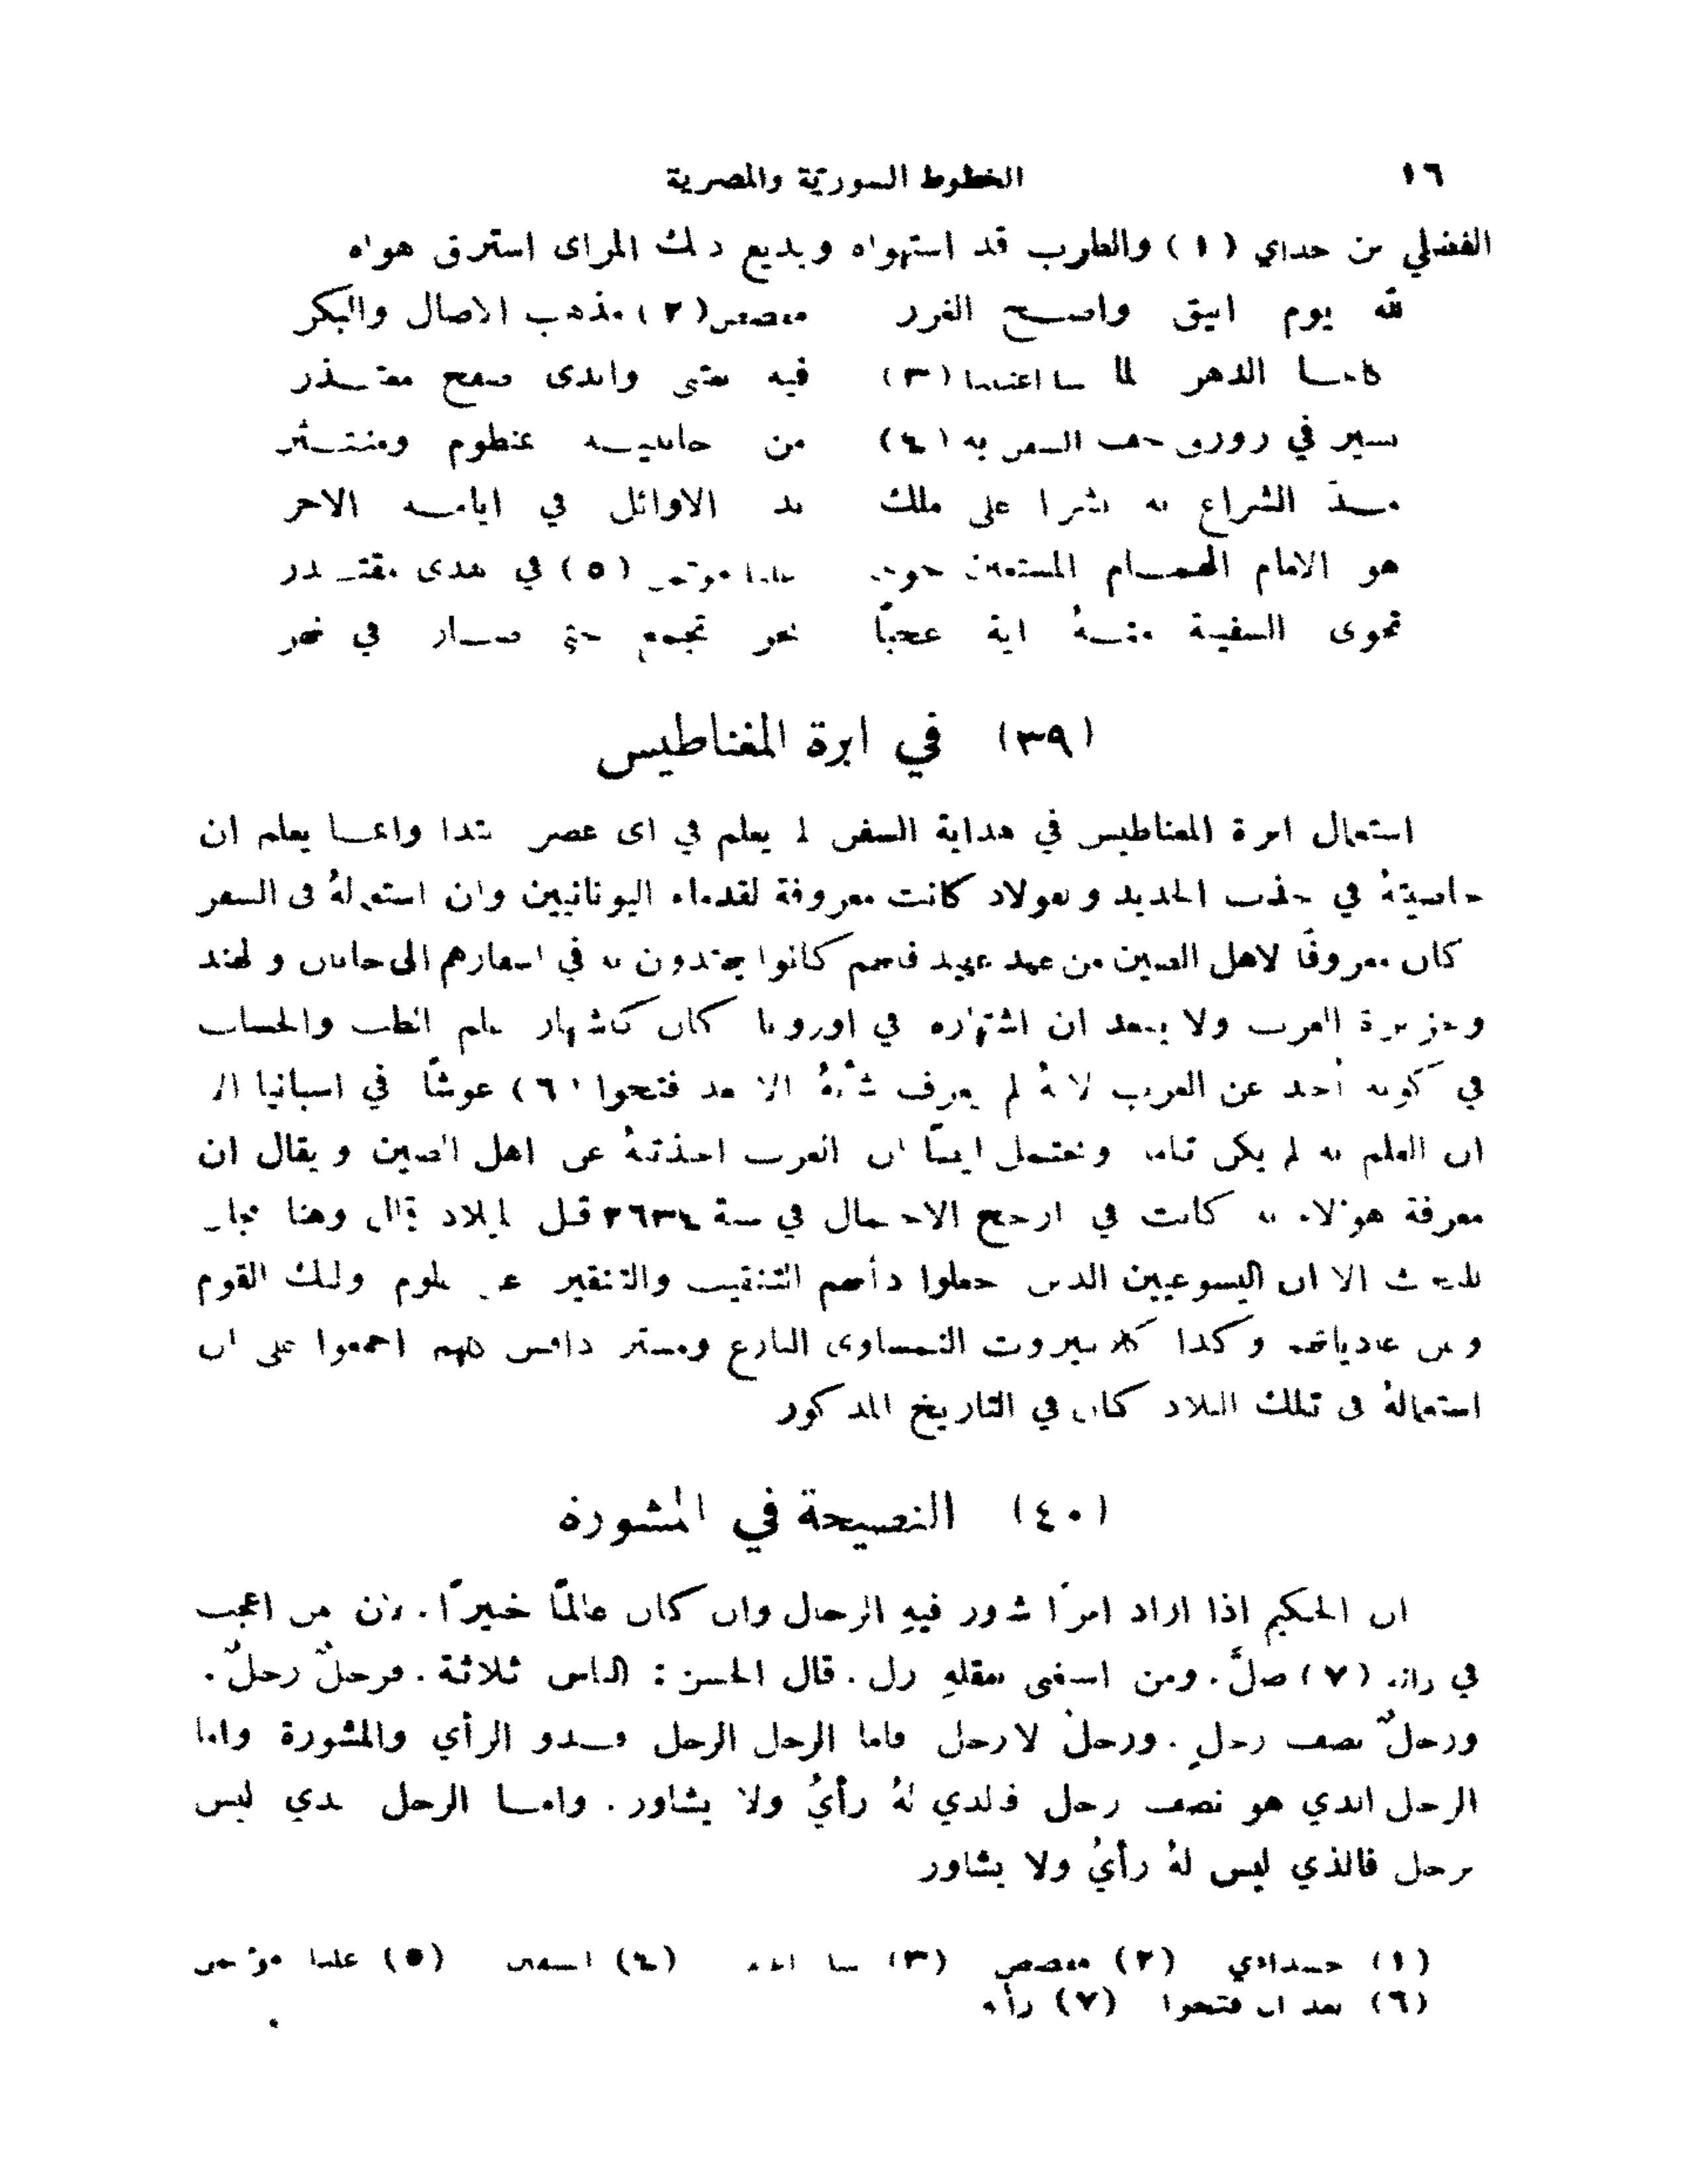 ١٦ الخطوط السورية والمصرية
الفضلي من حداي (١) والطرب قد استهواه وبديع ذلك المراى استرق هواه
لله يوم انيق واضح الغرر مفصص (٢) مذهب الاصال والبكر
كانما الدهر لما سا اعتبنا (٣) فيه بعتبى وابدى صفح معتذر
نسير في زورق حف السفين به (٤) من جانبيه بمنظوم ومنتثر
مد الشراع به نشرا على ملك بذ الاوائل في ايامه الاخر
هو الامام الهمام المستعين حوى عليا موتمن (٥) في هدى مقتدر
تحوى السفينة منهُ اية عجبًا بحر تجمع حتى صار في نحر
(٣٩) في ابرة المغناطيس
استعمال ابرة المغناطيس في هداية السفن لم يعلم في اى عصر ابتدا وانما يعلم ان
خاصيتهُ في جذب الحديد والفولاد كانت معروفة لقدماء اليونانيين وان استعمالهُ فى السفر
كان معروفًا لاهل الصين من عهد عهيد فانهم كانوا يهتدون به في اسفارهم الى والهند
وجزيرة العرب ولا يبعد ان اشتهاره في اوروبا كان كاشتهار علم الطب والحساب
في كونه اُخذ عن العرب لانهُ لم يعرف شانهُ الا بعد فتحوا (٦) في اسبانيا الا
ان العلم به لم يكن تاما ويحتمل ايضًا ان العرب اخذتهُ عن اهل الصين ويقال ان
معرفة هولاء به كانت في ارجح الاحتمال في سنة ٢٦٣٤ قبل الميلاد قال وهنا مجال
للبحث الا ان اليسوعيين الذين جعلوا دأبهم التنقيب والتنقير عن علوم اولئك القوم
وعن عادياتهم وكذا النمساوى البارع ومستر دافس كلهم اجمعوا على ان
استعمالهُ فى تلك البلاد كان في التاريخ المذكور
(٤٠) النصيحة في المشورة
ان الحكيم اذا اراد امرًا شاور فيهِ الرجال وان كان عالمًا خبيرًا. لان من اعجب
في رائه (٧) ضلَّ. ومن استغنى بعقلهِ زل. قال الحسن: الناس ثلاثة. فرجلٌ رجلٌ.
ورجلٌ نصف رجلٍ. ورجلٌ لا رجل فاما الرجل الرجل فذو الرأي والمشورة واما
الرجل الذي هو نصف رجل فالذي لهُ رأيُ ولا يشاور. واما الرجل الذي ليس
برجل فالذي ليس لهُ رأيُ ولا يشاور
(١) حسدادي (٢) مفضض (٣) سا (٤) السفين (٥) عليا موتمن
(٦) بعد ان فتحوا (٧) رأيه